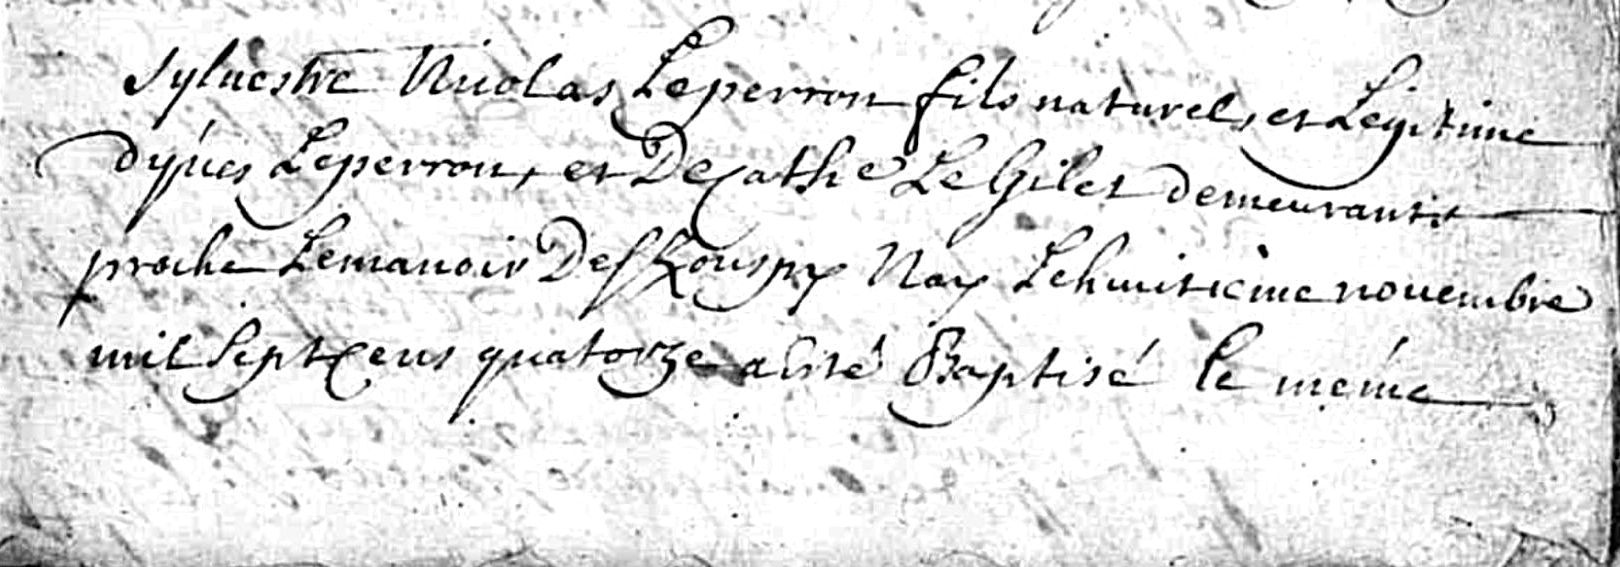 Sylvestre Nicolas Leperron fils naturel, et Légitime
d'yves Leperron, et De cathe Le Gilet demeurants
proche Lemanoir De Nay Le huitieme novembre
mil Sept Cens quatorze a esté Baptisé le méme